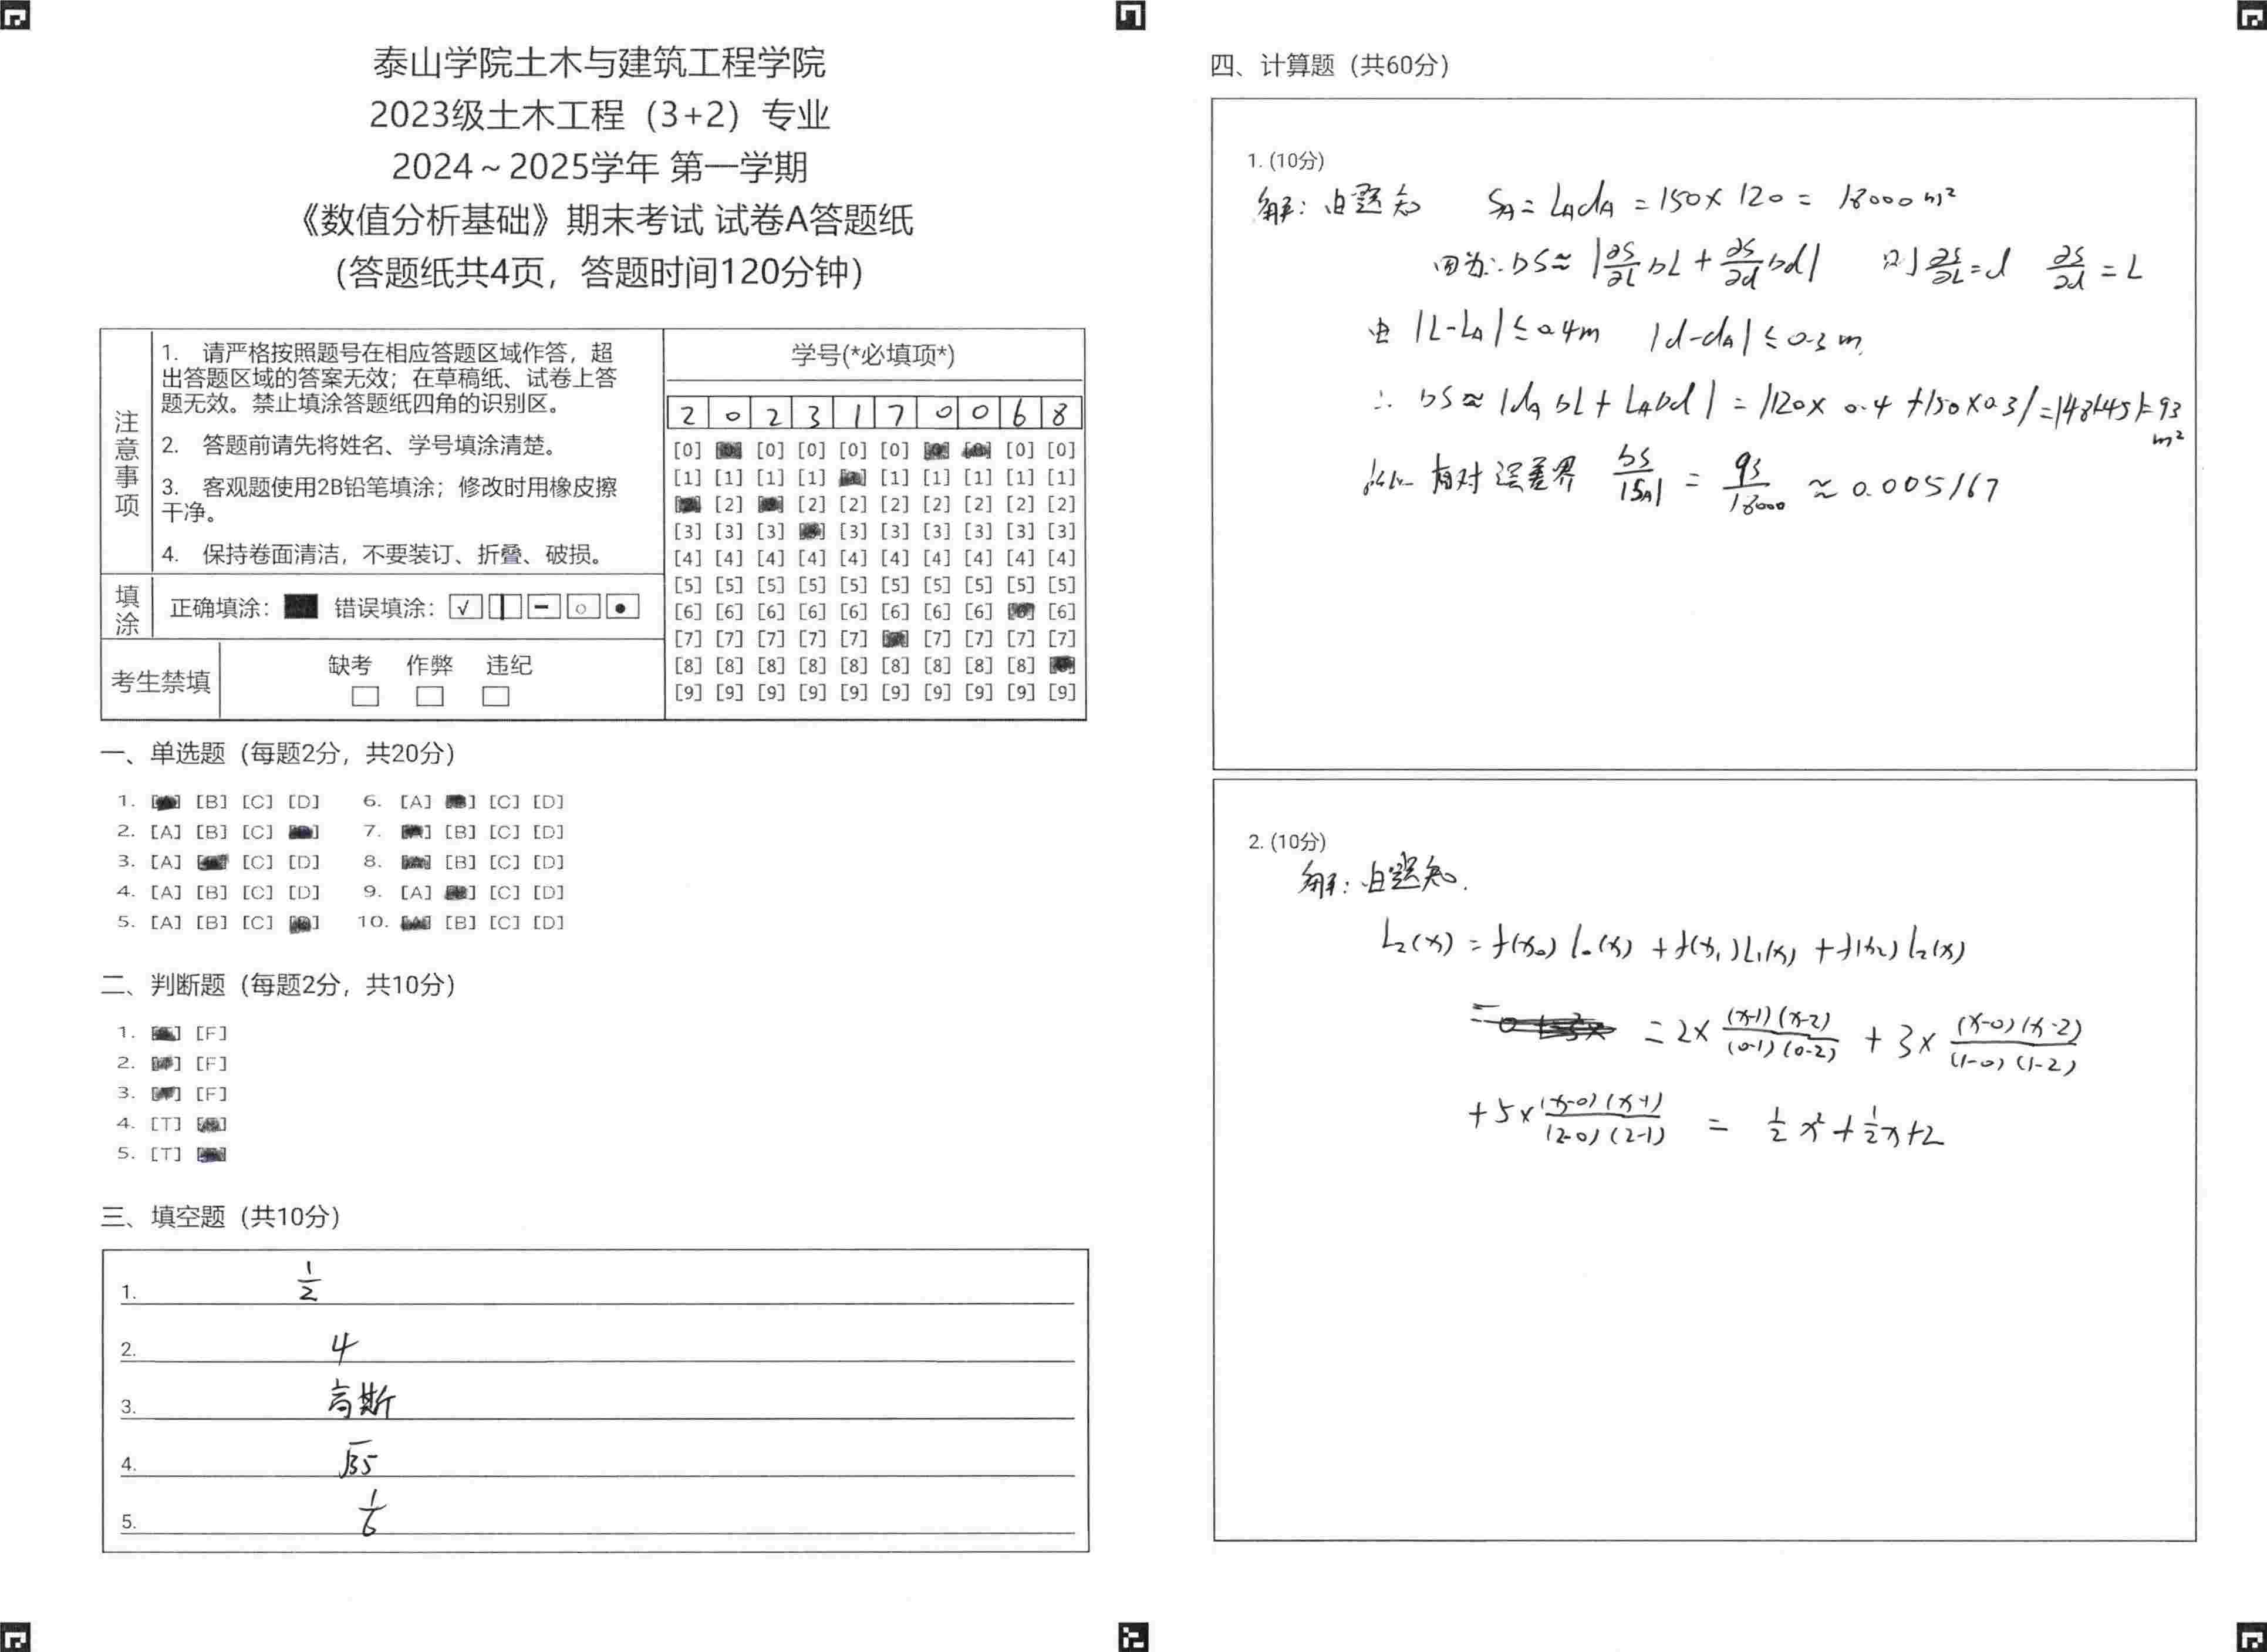 泰山学院土木与建筑工程学院
2023级土木工程（3+2）专业
2024～2025学年 第一学期
《数值分析基础》期末考试 试卷A答题纸
（答题纸共4页，答题时间120分钟）
注意事项
1. 请严格按照题号在相应答题区域作答，超
出答题区域的答案无效；在草稿纸、试卷上答
题无效。禁止填涂答题纸四角的识别区。
2. 答题前请先将姓名、学号填涂清楚。
3. 客观题使用2B铅笔填涂；修改时用橡皮擦
干净。
4. 保持卷面清洁，不要装订、折叠、破损。
填涂 正确填涂： 错误填涂： √
考生禁填 缺考 作弊 违纪
学号(*必填项*)
2 0 2 3 1 7 0 0 6 8
[0] [0] [0] [0] [0] [0] [0]
[1] [1] [1] [1] [1] [1] [1] [1] [1]
[2] [2] [2] [2] [2] [2] [2] [2]
[3] [3] [3] [3] [3] [3] [3] [3] [3]
[4] [4] [4] [4] [4] [4] [4] [4] [4] [4]
[5] [5] [5] [5] [5] [5] [5] [5] [5] [5]
[6] [6] [6] [6] [6] [6] [6] [6] [6]
[7] [7] [7] [7] [7] [7] [7] [7] [7]
[8] [8] [8] [8] [8] [8] [8] [8] [8]
[9] [9] [9] [9] [9] [9] [9] [9] [9] [9]
一、单选题（每题2分，共20分）
1. [B] [C] [D] 6. [A] [C] [D]
2. [A] [B] [C] 7. [B] [C] [D]
3. [A] [C] [D] 8. [B] [C] [D]
4. [A] [B] [C] [D] 9. [A] [C] [D]
5. [A] [B] [C] 10. [B] [C] [D]
二、判断题（每题2分，共10分）
1. [F]
2. [F]
3. [F]
4. [T]
5. [T]
三、填空题（共10分）
1. 1/2
2. 4
3. 高斯
4. √35
5. 1/6
四、计算题（共60分）
1. (10分)
解：由题知 S_A = L_A d_A = 150 × 120 = 18000 m²
因为∴ ΔS ≈ |∂S/∂L ΔL + ∂S/∂d Δd| 则 ∂S/∂L = d ∂S/∂d = L
由 |L-L_A| ≤ 0.4m |d-d_A| ≤ 0.3m
∴ ΔS ≈ |d_A ΔL + L_A Δd| = |120 × 0.4 + 150 × 0.3| = |48+45| = 93 m²
所以 相对误差界 ΔS/|S_A| = 93/18000 ≈ 0.005167
2. (10分)
解：由题知.
L₂(x) = f(x₀) l₀(x) + f(x₁) l₁(x) + f(x₂) l₂(x)
= 2 × (x-1)(x-2)/(0-1)(0-2) + 3 × (x-0)(x-2)/(1-0)(1-2)
+ 5 × (x-0)(x-1)/(2-0)(2-1) = 1/2 x² + 1/2 x + 2